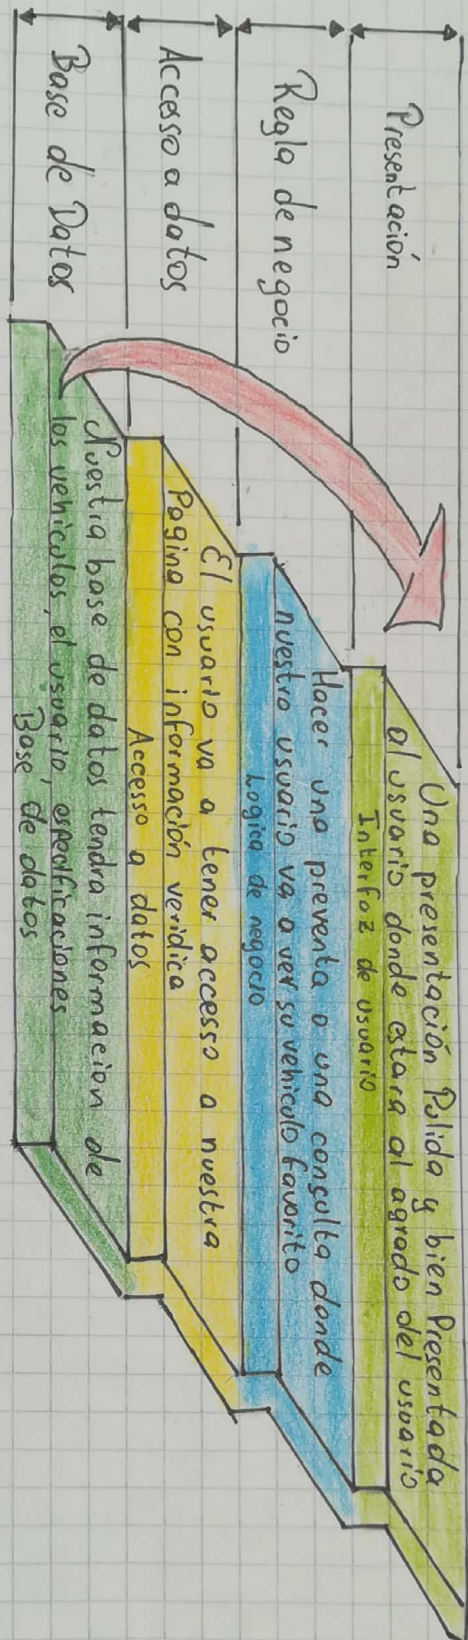 Presentación
Una presentación Pulida y bien Presentada
al usuario donde estara al agrado del usuario
Interfaz de usuario
Regla de negocio
Hacer una preventa o una consulta donde
nuestro usuario va a ver su vehiculo favorito
Logica de negocio
Accesso a datos
El usuario va a tener accesso a nuestra
Pagina con información veridica
Accesso a datos
Base de Datos
Nuestra base de datos tendra informacion de
los vehiculos, el usuario, especificaciones
Base de datos